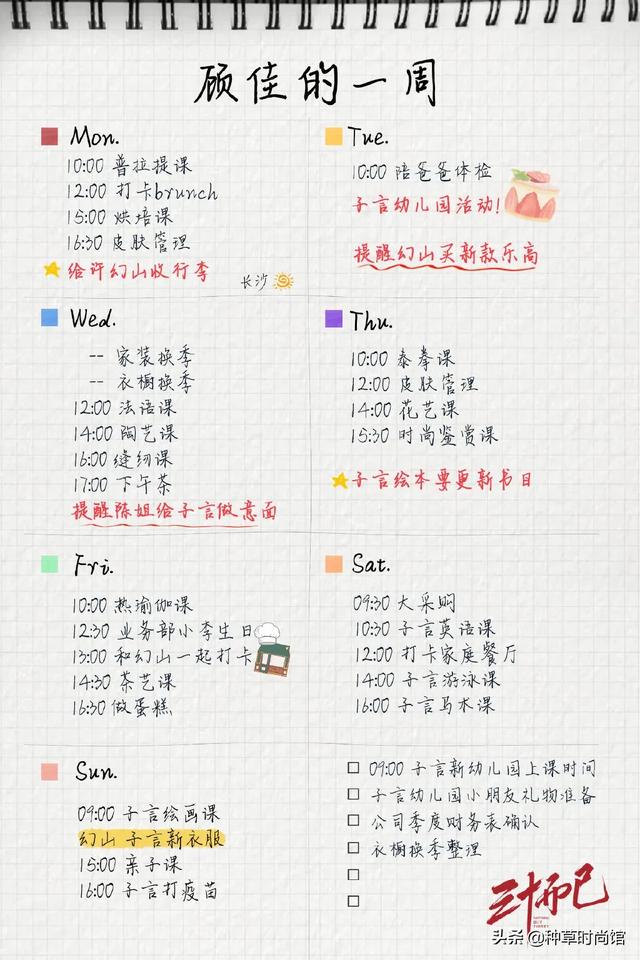 顾佳的一周
Mon.
10:00 普拉提课
12:00 打卡brunch
15:00 烘培课
16:30 皮肤管理
给许幻山收行李
长沙
Tue.
10:00 陪爸爸体检
子言幼儿园活动!
提醒幻山买新款乐高
Wed.
-- 家装换季
-- 衣橱换季
12:00 法语课
14:00 陶艺课
16:00 缝纫课
17:00 下午茶
提醒陈姐给子言做意面
Thu.
10:00 泰拳课
12:00 皮肤管理
14:00 花艺课
15:30 时尚鉴赏课
子言绘本要更新书目
Fri.
10:00 热瑜伽课
12:30 业务部小李生日
13:00 和幻山一起打卡
14:30 茶艺课
16:30 做蛋糕
Sat.
09:30 大采购
10:30 子言英语课
12:00 打卡家庭餐厅
14:00 子言游泳课
16:00 子言马术课
Sun.
09:00 子言绘画课
幻山 子言新衣服
15:00 亲子课
16:00 子言打疫苗
09:00 子言新幼儿园上课时间
子言幼儿园小朋友礼物准备
公司季度财务表确认
衣橱换季整理
三十而已
头条 @种草时尚馆